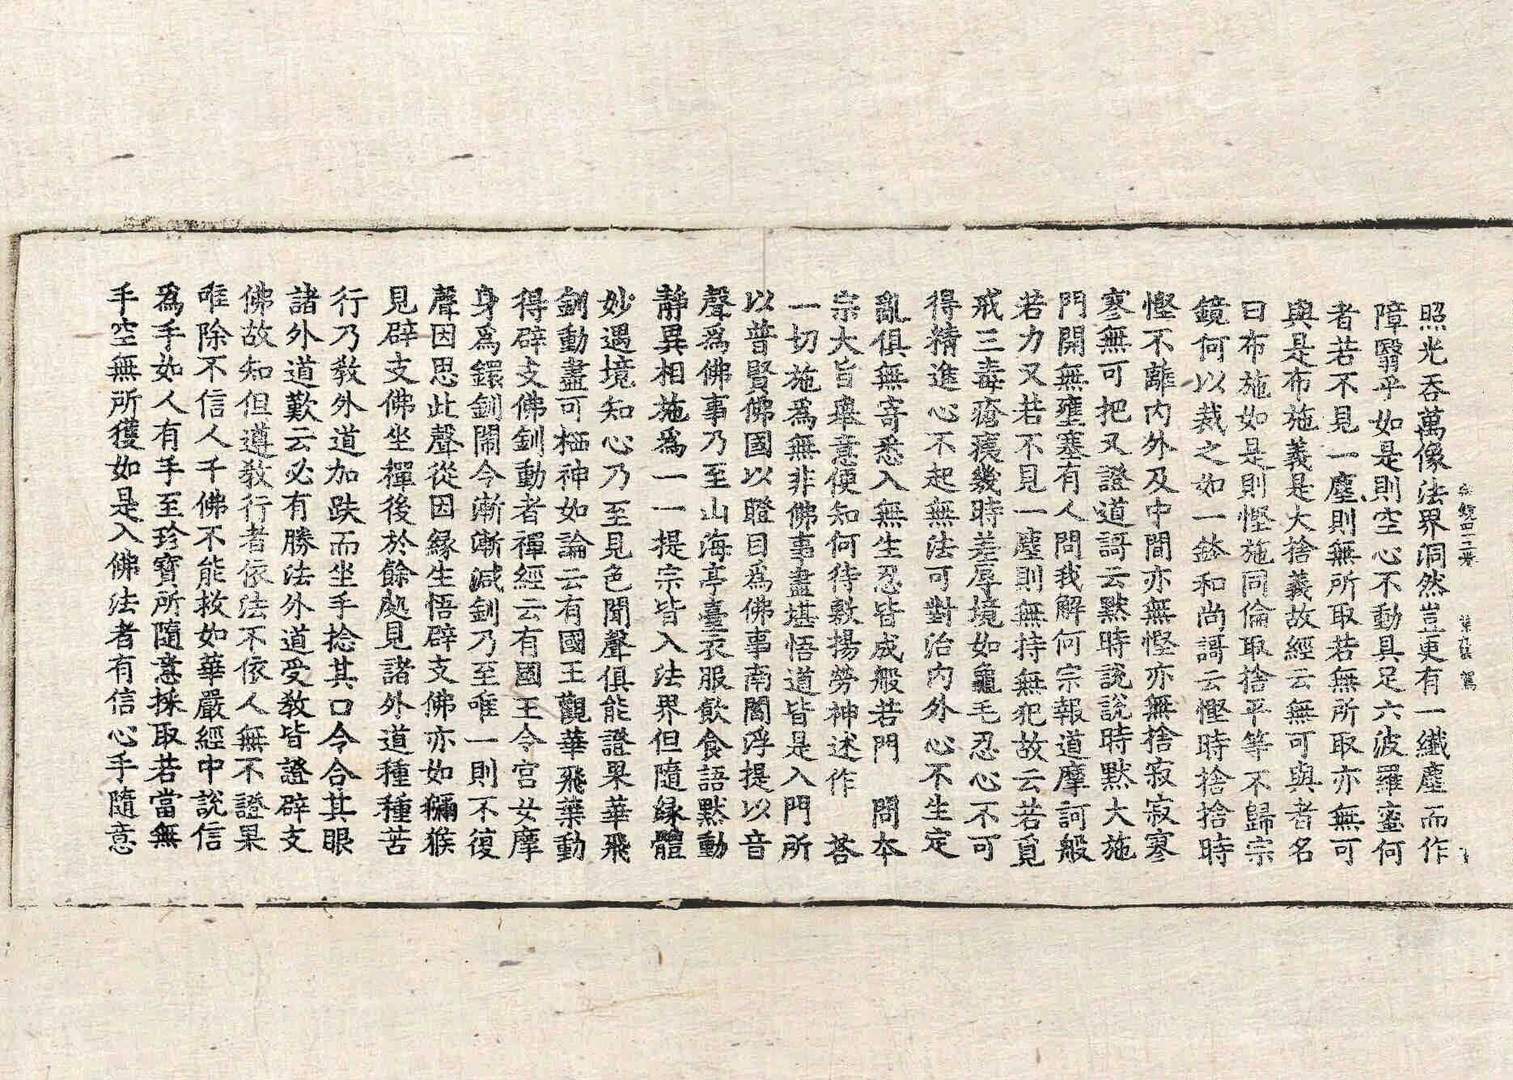 照光吞萬像法界洞然豈更有一纖塵而作
障翳乎如是則空心不動具足六波羅蜜何
者若不見一塵則無所取若無所取亦無可
與是布施義是大捨義故經云無可與者名
曰布施如是則慳施同倫取捨平等不歸宗
鏡何以裁之如一鉢和尚謌云慳時捨捨時
慳不離內外及中間亦無慳亦無捨寂寂寥
寥無可把又證道謌云默時說說時默大施
門開無壅塞有人問我解何宗報道摩訶般
若力又若不見一塵則無持無犯故云若覓
戒三毒瘡痍幾時差辱境如龜毛忍心不可
得精進心不起無法可對治內外心不生定
亂俱無寄悉入無生忍皆成般若門 問本
宗大旨舉意便知何待敷揚勞神述作 荅
一切施爲無非佛事盡堪悟道皆是入門所
以普賢佛國以瞪目爲佛事南閻浮提以音
聲爲佛事乃至山海亭臺衣服飲食語默動
靜異相施爲一一提宗皆入法界但隨緣體
妙遇境知心乃至見色聞聲俱能證果華飛
釧動盡可栖神如論云有國王觀華飛葉動
得辟支佛釧動者禪經云有國王令宮女摩
身爲鐶釧鬧令漸漸減釧乃至唯一則不復
聲因思此聲從因緣生悟辟支佛亦如獼猴
見辟支佛坐禪後於餘處見諸外道種種苦
行乃教外道加趺而坐手捻其口令合其眼
諸外道歎云必有勝法外道受教皆證辟支
佛故知但遵教行者依法不依人無不證果
唯除不信人千佛不能救如華嚴經中說信
爲手如人有手至珍寶所隨意採取若當無
手空無所獲如是入佛法者有信心手隨意